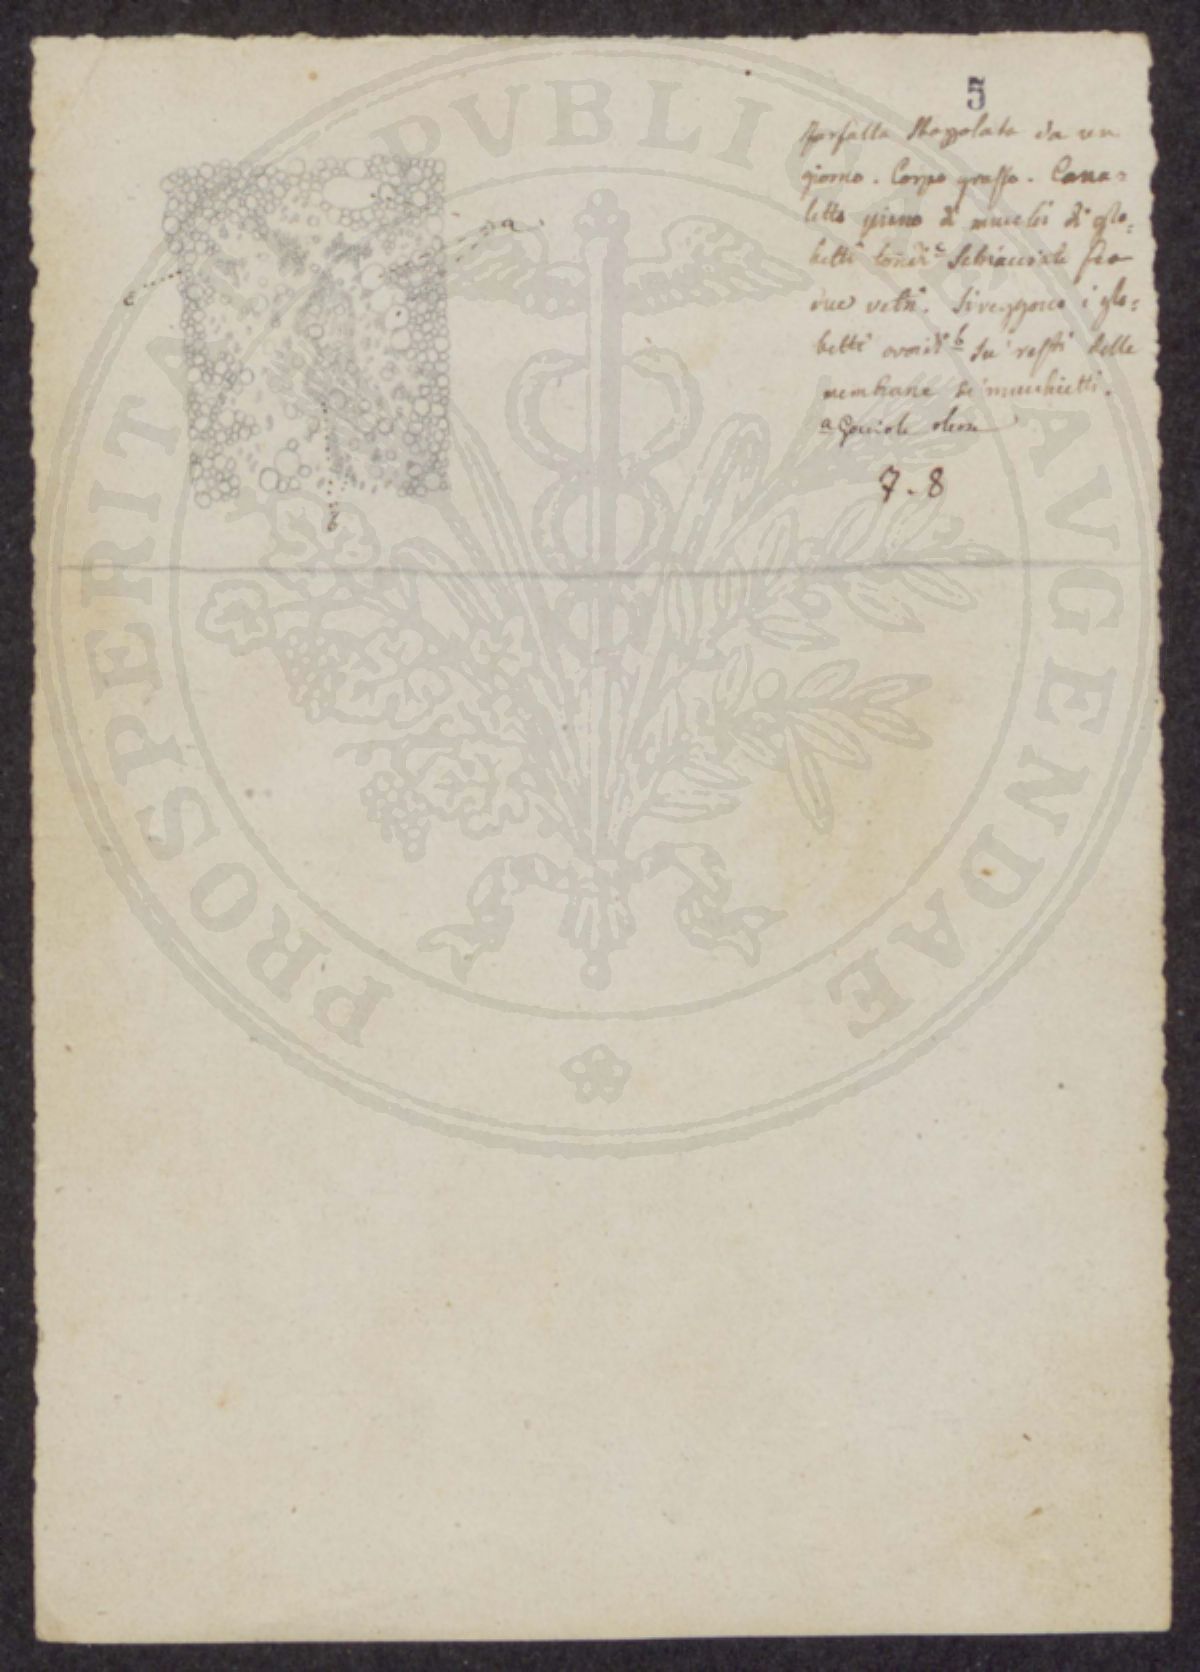 5
Farfalla sbozzolata da un
giorno. Corpo grasso. Cana=
letto pieno di mucchi di glo=
betti tondi c schiacciate fra
due vetri. Si veggono i glo=
betti ovoidi b su' resti delle
membrane de' mucchietti.
a Gocciole oleose
7.8
a
c
b
PROSPERITATI PVBLICAE AVGENDAE